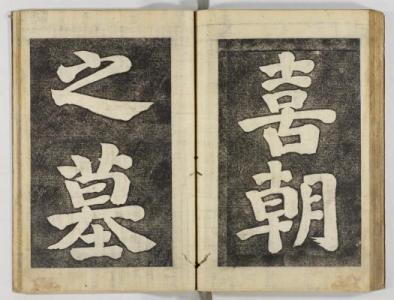 喜朝
之墓